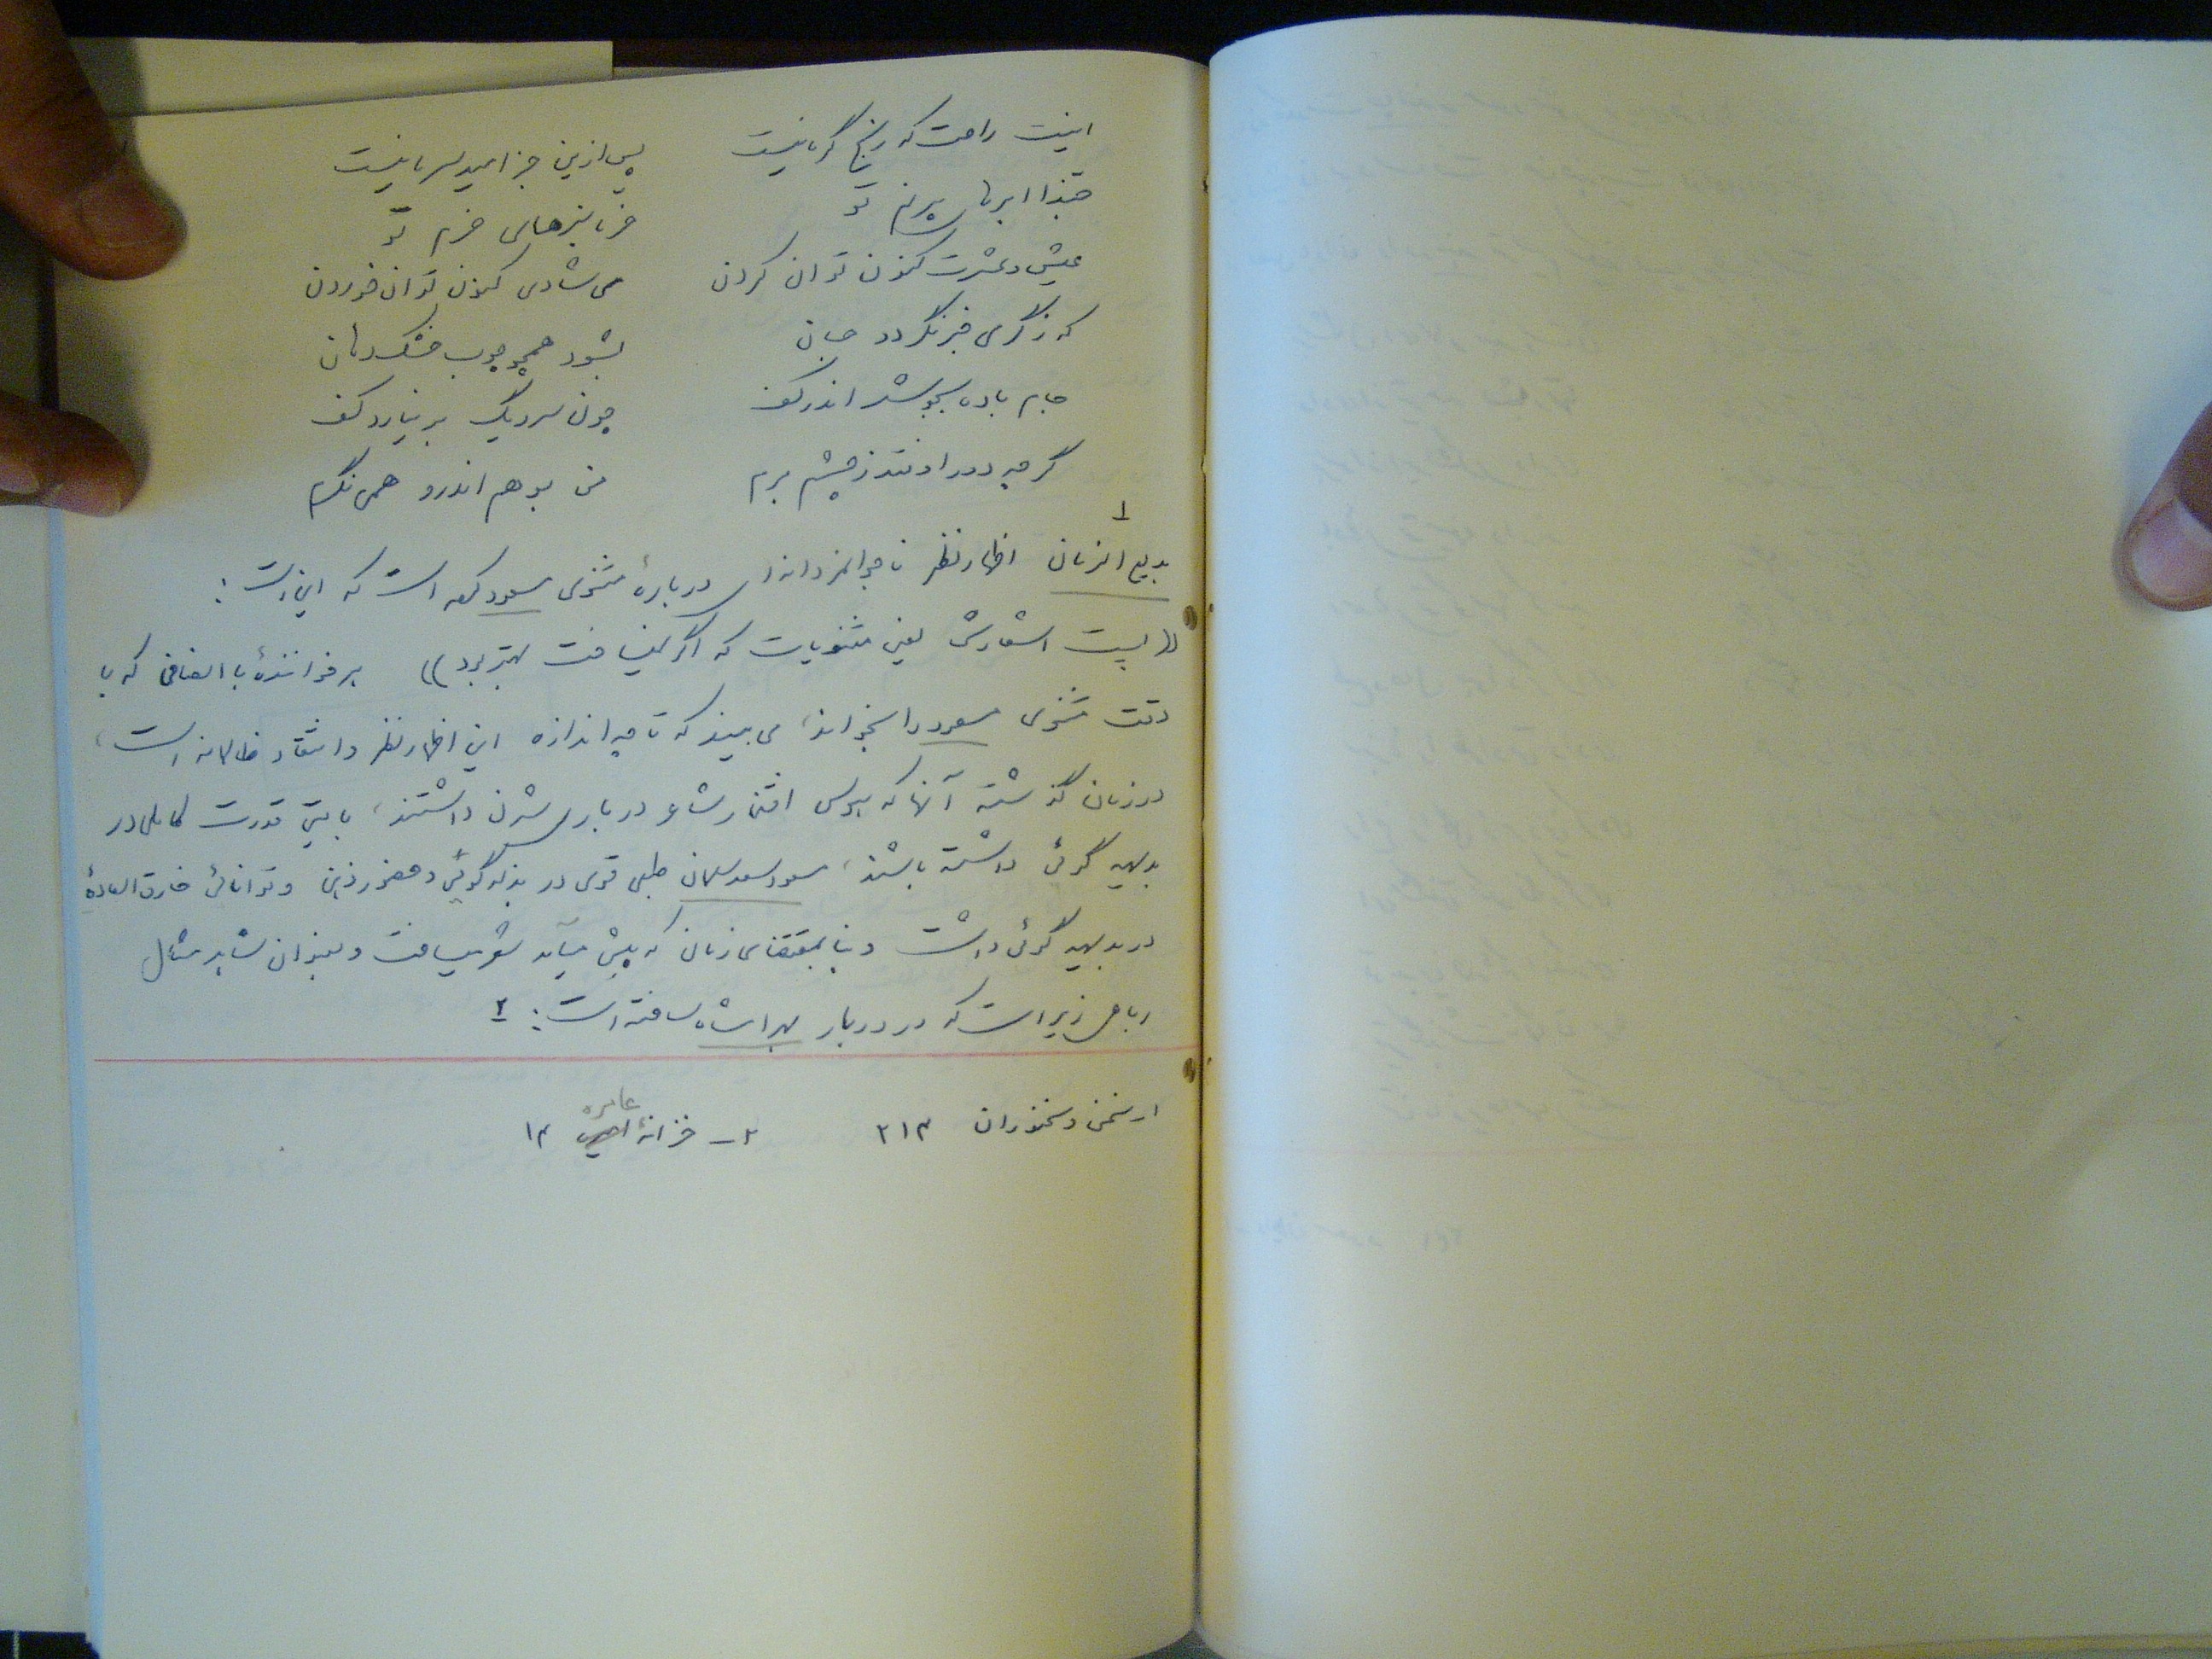 اینت راحت که رنج گرما نیست   پس ازین جز امید سرما نیست
حبذا ابرهای پر نم تو   خرما سبزهای خرم تو
عیش و عشرت کنون توان کردن   می شادی کنون توان خوردن
که ز گرمی خبر نگردد جان   نشود همچو چوب خشک دهان
جام باده بجوشد اندر کف   چون سر دیگ بر نیارد کف
گرچه دور اوفتد ز چشم برم   من بوهم اندرو همی نگرم
بدیع الزمان ۱ اظهار نظر ناجوانمردانه‌ای دربارهٔ مثنوی مسعود کرده است که این است :
((پست اشعارش یعنی مثنویات که اگر نمیساخت بهتر بود)) هر خوانندهٔ با انصافی که با
دقت مثنوی مسعود را بخواند، می بیند که تا چه اندازه این اظهار نظر و انتقاد ظالمانه است،
در زمان گذشته آنها که هوس افتخار شاعر درباری شدن داشتند، بایستی قدرت کاملی در
بدیهه گوئی داشته باشند، مسعود سعد سلمان طبعی قوی در بذله گوئی و حضور ذهن و توانائی خارق العادهٔ
در بدیهه گوئی داشت و بنا بمقتضای زمان که پیش میآمد شعر میساخت و بعنوان شاهد مثال
رباعی زیر است که در دربار بهرامشاه ساخته است : ۲
۱ـ سخن و سخنوران ۲۱۳   ۲ـ خزانهٔ عامره ۱۳